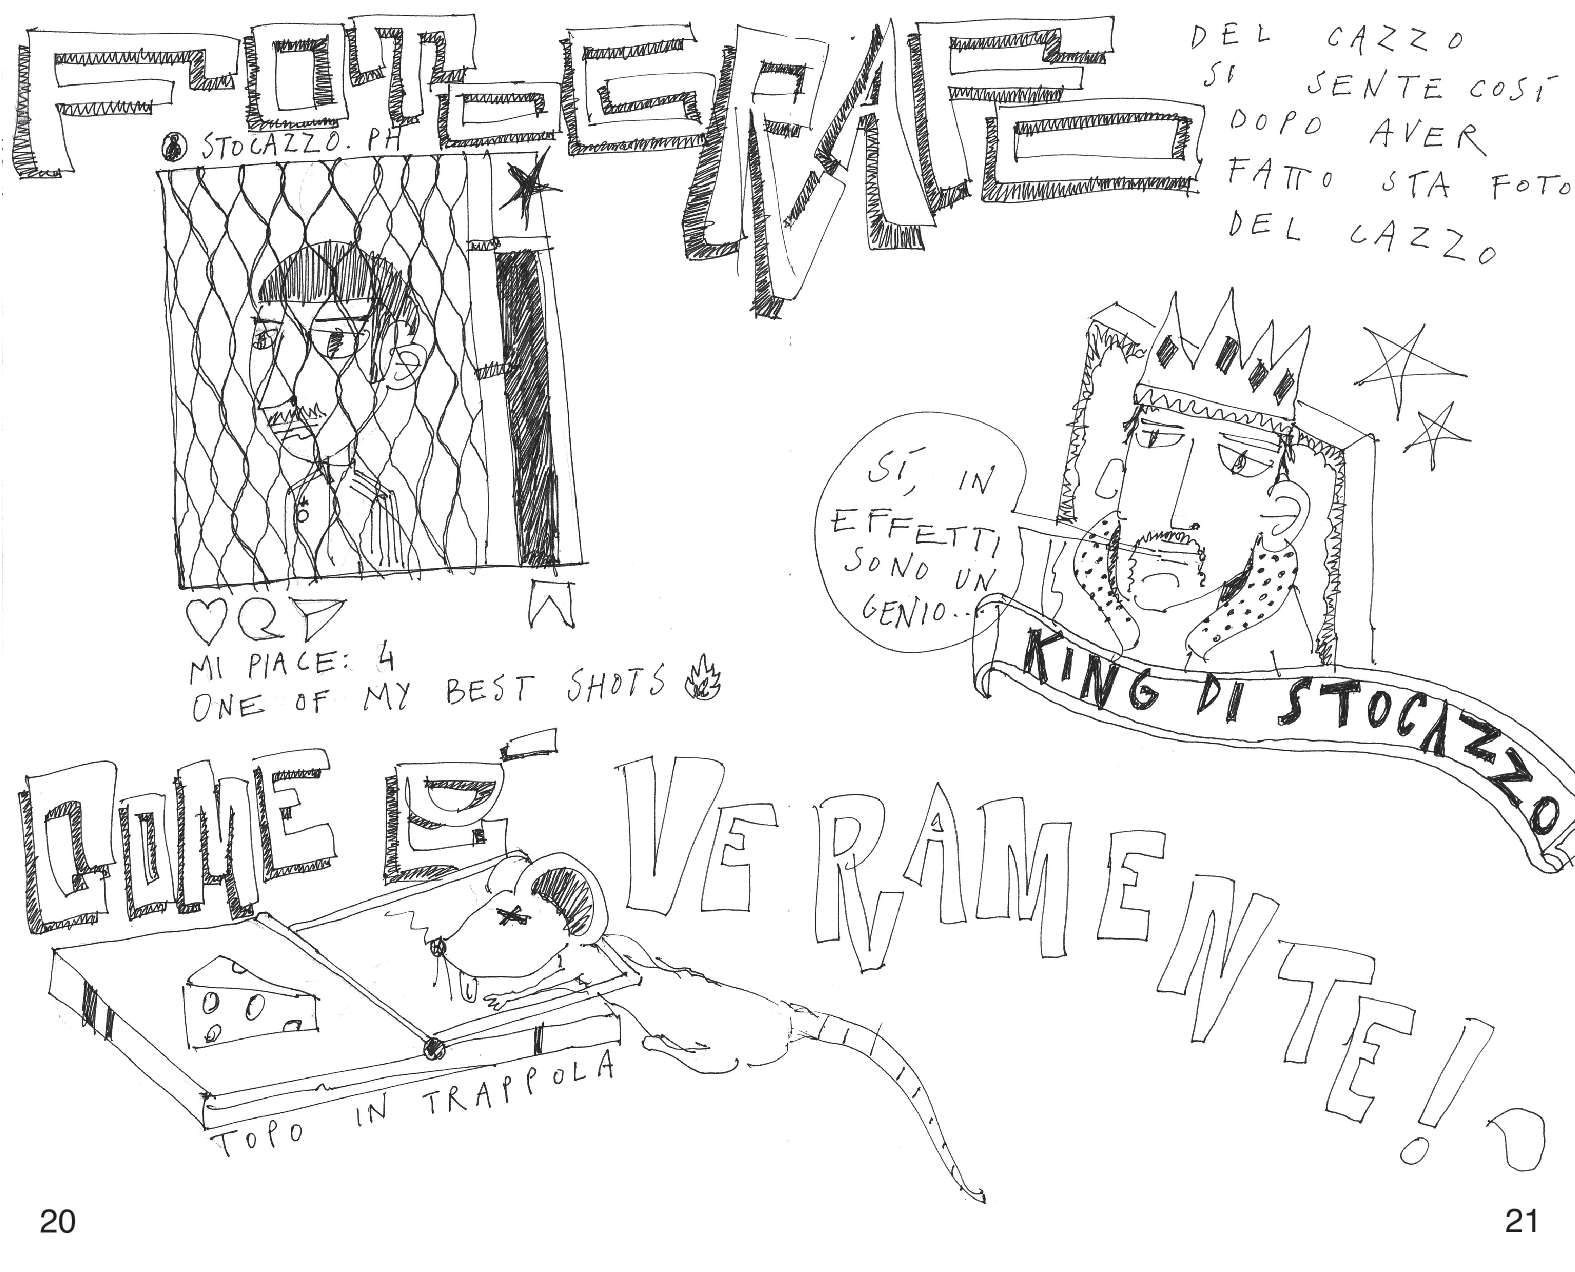 FOTOGRAFO
DEL CAZZO
SI SENTE COSÍ
DOPO AVER
FATTO STA FOTO
DEL CAZZO
STOCAZZO.PH
MI PIACE: 4
ONE OF MY BEST SHOTS
SÍ, IN
EFFETTI
SONO UN
GENIO...
KING DI STOCAZZO
COME È VERAMENTE!
TOPO IN TRAPPOLA
20
21